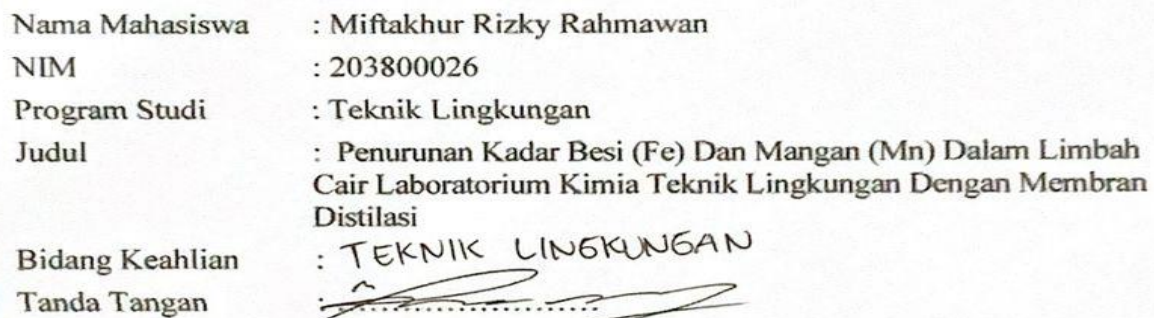 Nama Mahasiswa : Miftakhur Rizky Rahmawan
NIM : 203800026
Program Studi : Teknik Lingkungan
Judul : Penurunan Kadar Besi (Fe) Dan Mangan (Mn) Dalam Limbah
Cair Laboratorium Kimia Teknik Lingkungan Dengan Membran
Distilasi
Bidang Keahlian : TEKNIK LINGKUNGAN
Tanda Tangan :......................